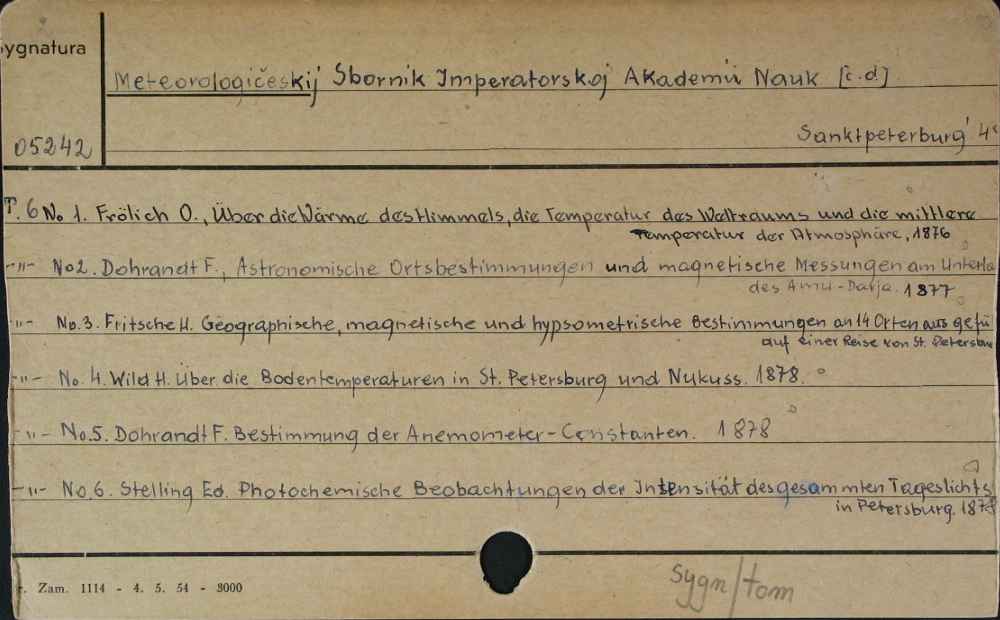 ygnatura
Meteorologičeskij Sbornik Imperatorskoj Akademii Nauk [c.d]
05242
Sanktpeterburg 4°
T. 6 No 1. Frölich O., Über die Wärme des Himmels, die Temperatur des Weltraums und die mittlere
Temperatur der Atmosphäre, 1876
-"- No 2. Dohrandt F., Astronomische Ortsbestimmungen und magnetische Messungen am Unterla
des Amu-Darja. 1877
-"- No. 3. Fritsche H. Geographische, magnetische und hypsometrische Bestimmungen an 14 Orten ausgefü
auf einer Reise von St. Petersbu
-"- No. 4. Wild H. Über die Bodentemperaturen in St. Petersburg und Nukuss. 1878.
-"- No. 5. Dohrandt F. Bestimmung der Anemometer-Constanten. 1878
-"- No. 6. Stelling Ed. Photochemische Beobachtungen der Intensität des gesammten Tageslichts
in Petersburg. 1878
r. Zam. 1114 - 4. 5. 54 - 3000
sygn/tom